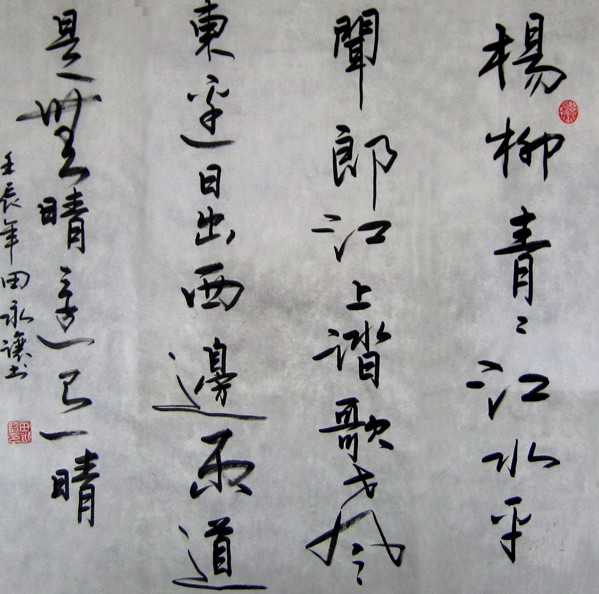 楊柳青〻江水平
聞郎江上踏歌聲
東邊日出西邊雨道
是無晴還有晴
壬辰年田永讓書